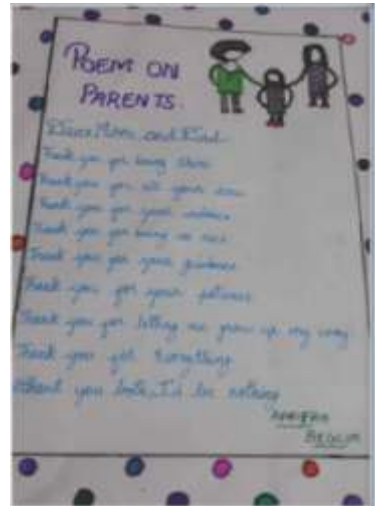 POEM ON
PARENTS.
Dear Mom and Dad
Thank you for being there
Thank you for all your
Thank you for your
Thank you for being so nice
Thank you for your guidance
Thank you for your patience
Thank you for letting me grow up my way
Thank you for Everything
Without you both, I'd be nothing
BEGUM